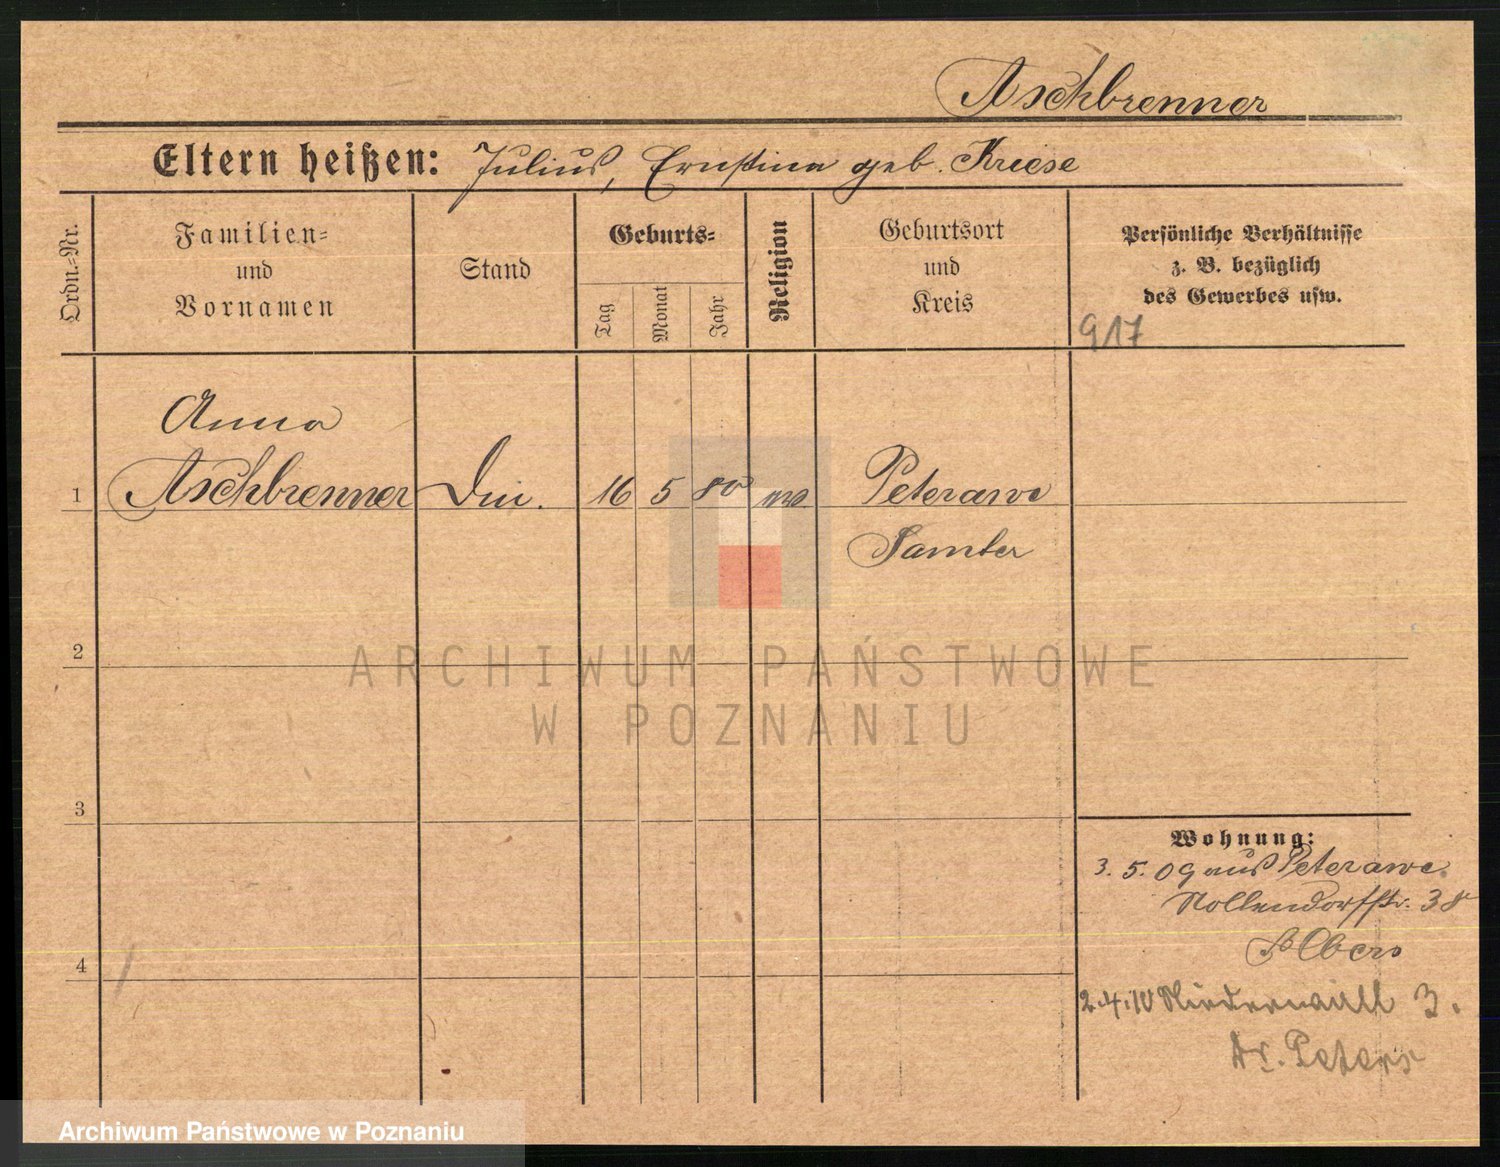 Aschbrenner
Eltern heißen: Julius, Ernstina geb. Kriese
Ordn.=Nr.
Familien=
und
Vornamen
Stand
Geburts=
Tag
Monat
Jahr
Religion
Geburtsort
und
Kreis
Persönliche Verhältnisse
z. B. bezüglich
des Gewerbes usw.
917
Anna
1 Aschbrenner Din. 16 5 80 Peterawe
Samter
2
ARCHIWUM PAŃSTWOWE
W POZNANIU
3
Wohnung:
3.5.09 aus Peterawe
Nollendorfstr. 38
Albers
4
2.4.10 Niederwall 3.
Dr. Peters
Archiwum Państwowe w Poznaniu